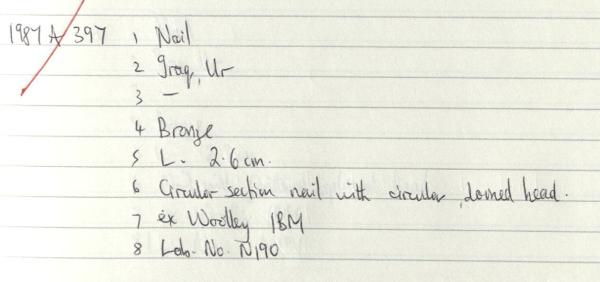 1987 A 397 1 Nail
2 Iraq, Ur
3 —
4 Bronze
5 L. 2.6cm.
6 Circular section nail with circular, domed head.
7 ex Woolley IBM
8 Lab. No. N190